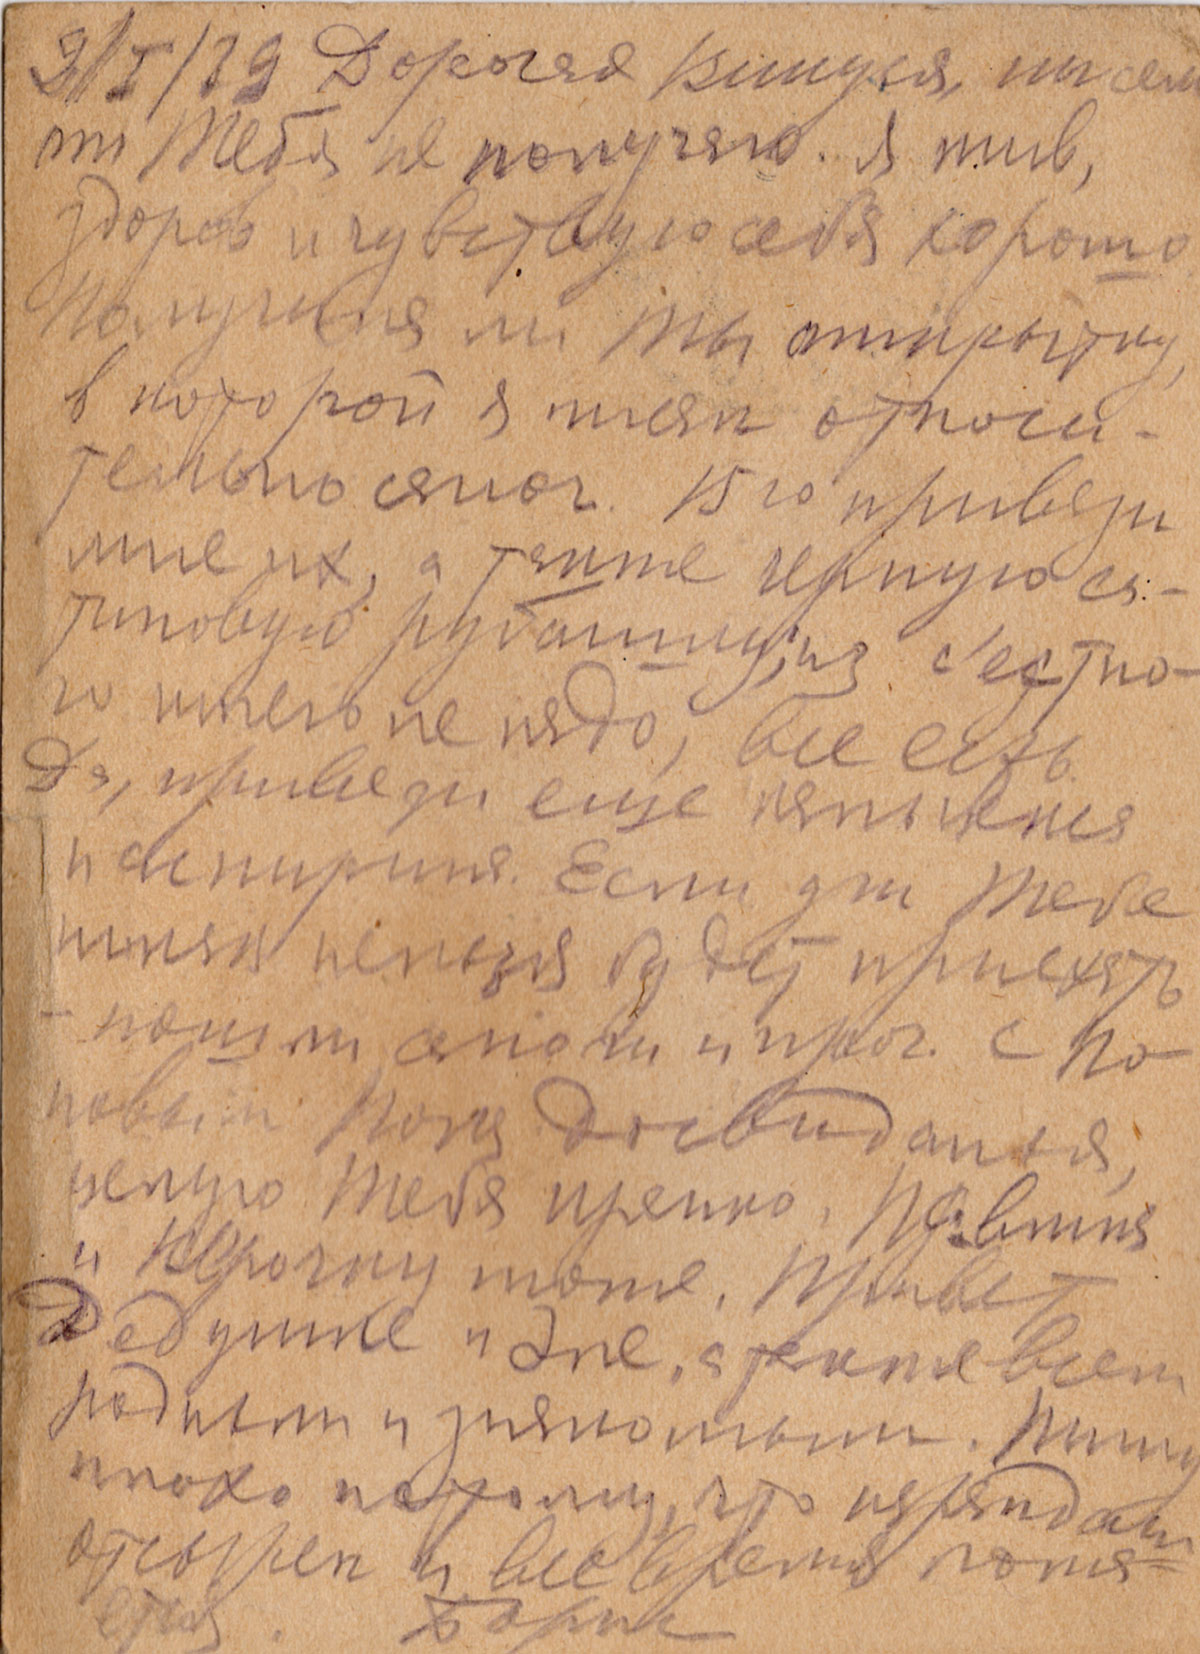 Дорогая Кинуся, писем
от Тебя не получаю. Я жив,
здоров и чувствую себя хорошо
Получила ли Ты открытку,
в которой я писал относи-
тельно сапог. 15го привези
мне их, а также черную са-
тиновую рубашку, из с'естно-
го ничего не надо, все есть
Да, привези еще кальцекса
и аспирина. Если для Тебе
никак нельзя будет приехать
- пошли сапоги и проч. с По-
повым Пока досвиданья,
целую Тебя крепко, Павлика
и Керочку тоже. Привет
Дедушке и Эле, а также всем
родным и знакомым. Пишу
плохо потому, что карандаш
отсырел и все время лома-
ется. Борис